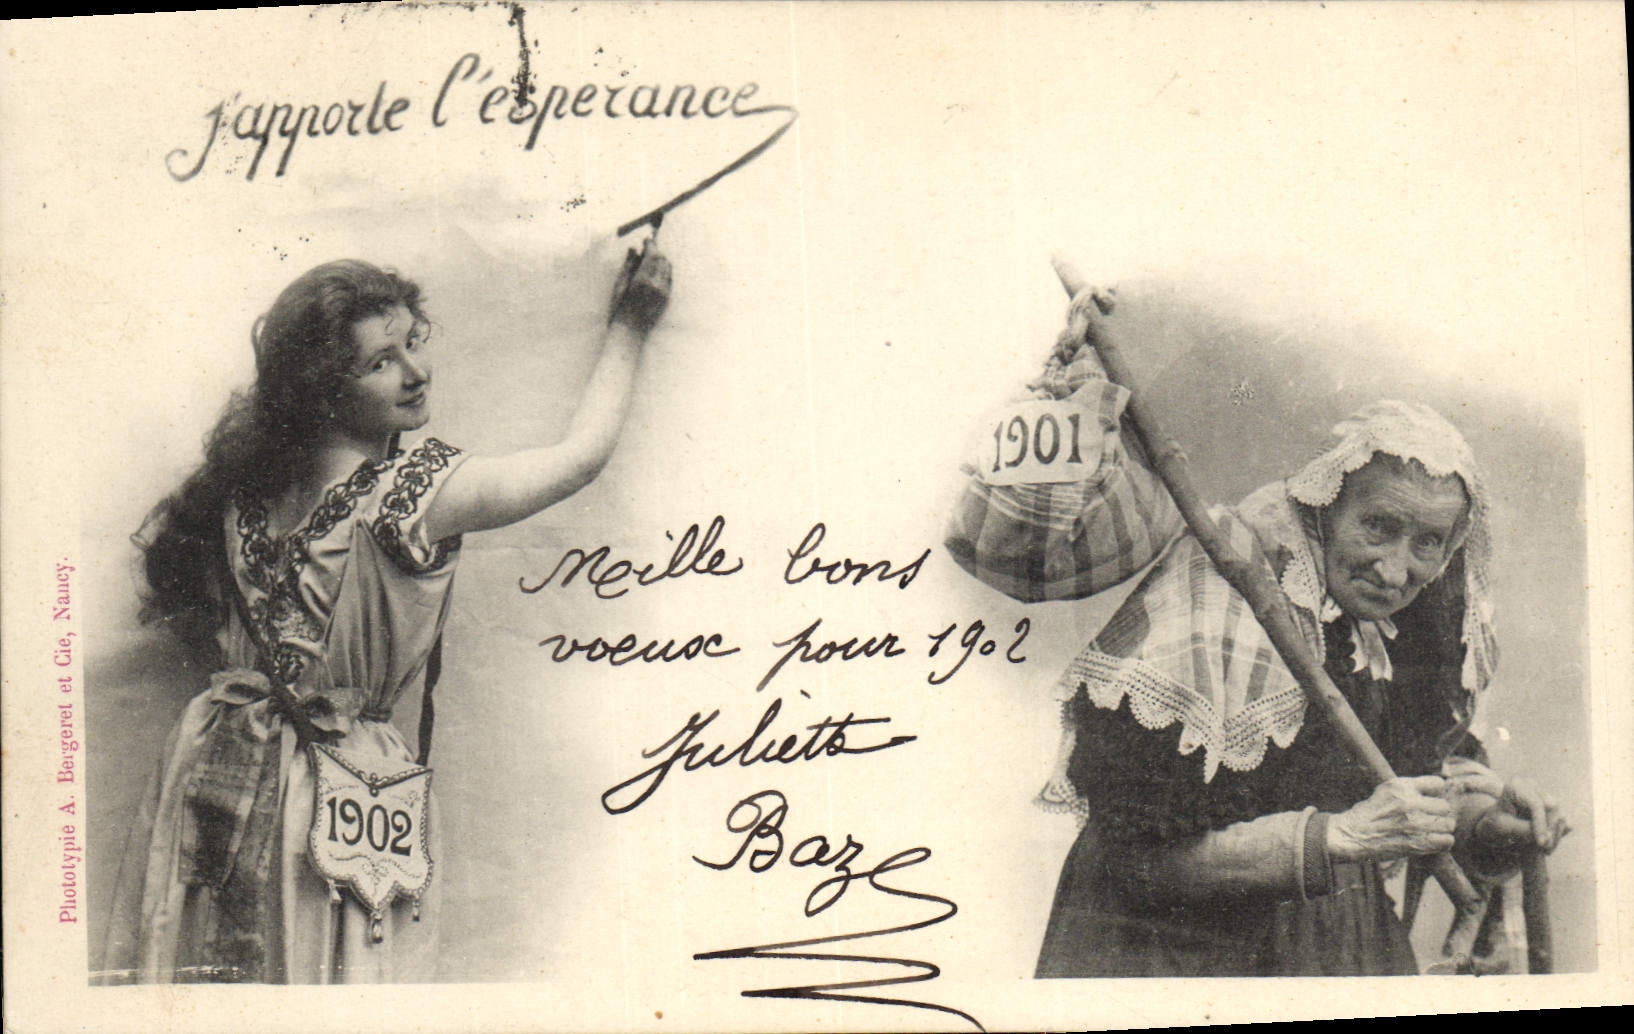 j'apporte l'espérance
1901
Mille bons
voeux pour 1902
Juliette
Baz
1902
Phototypie A. Bergeret et Cie, Nancy.